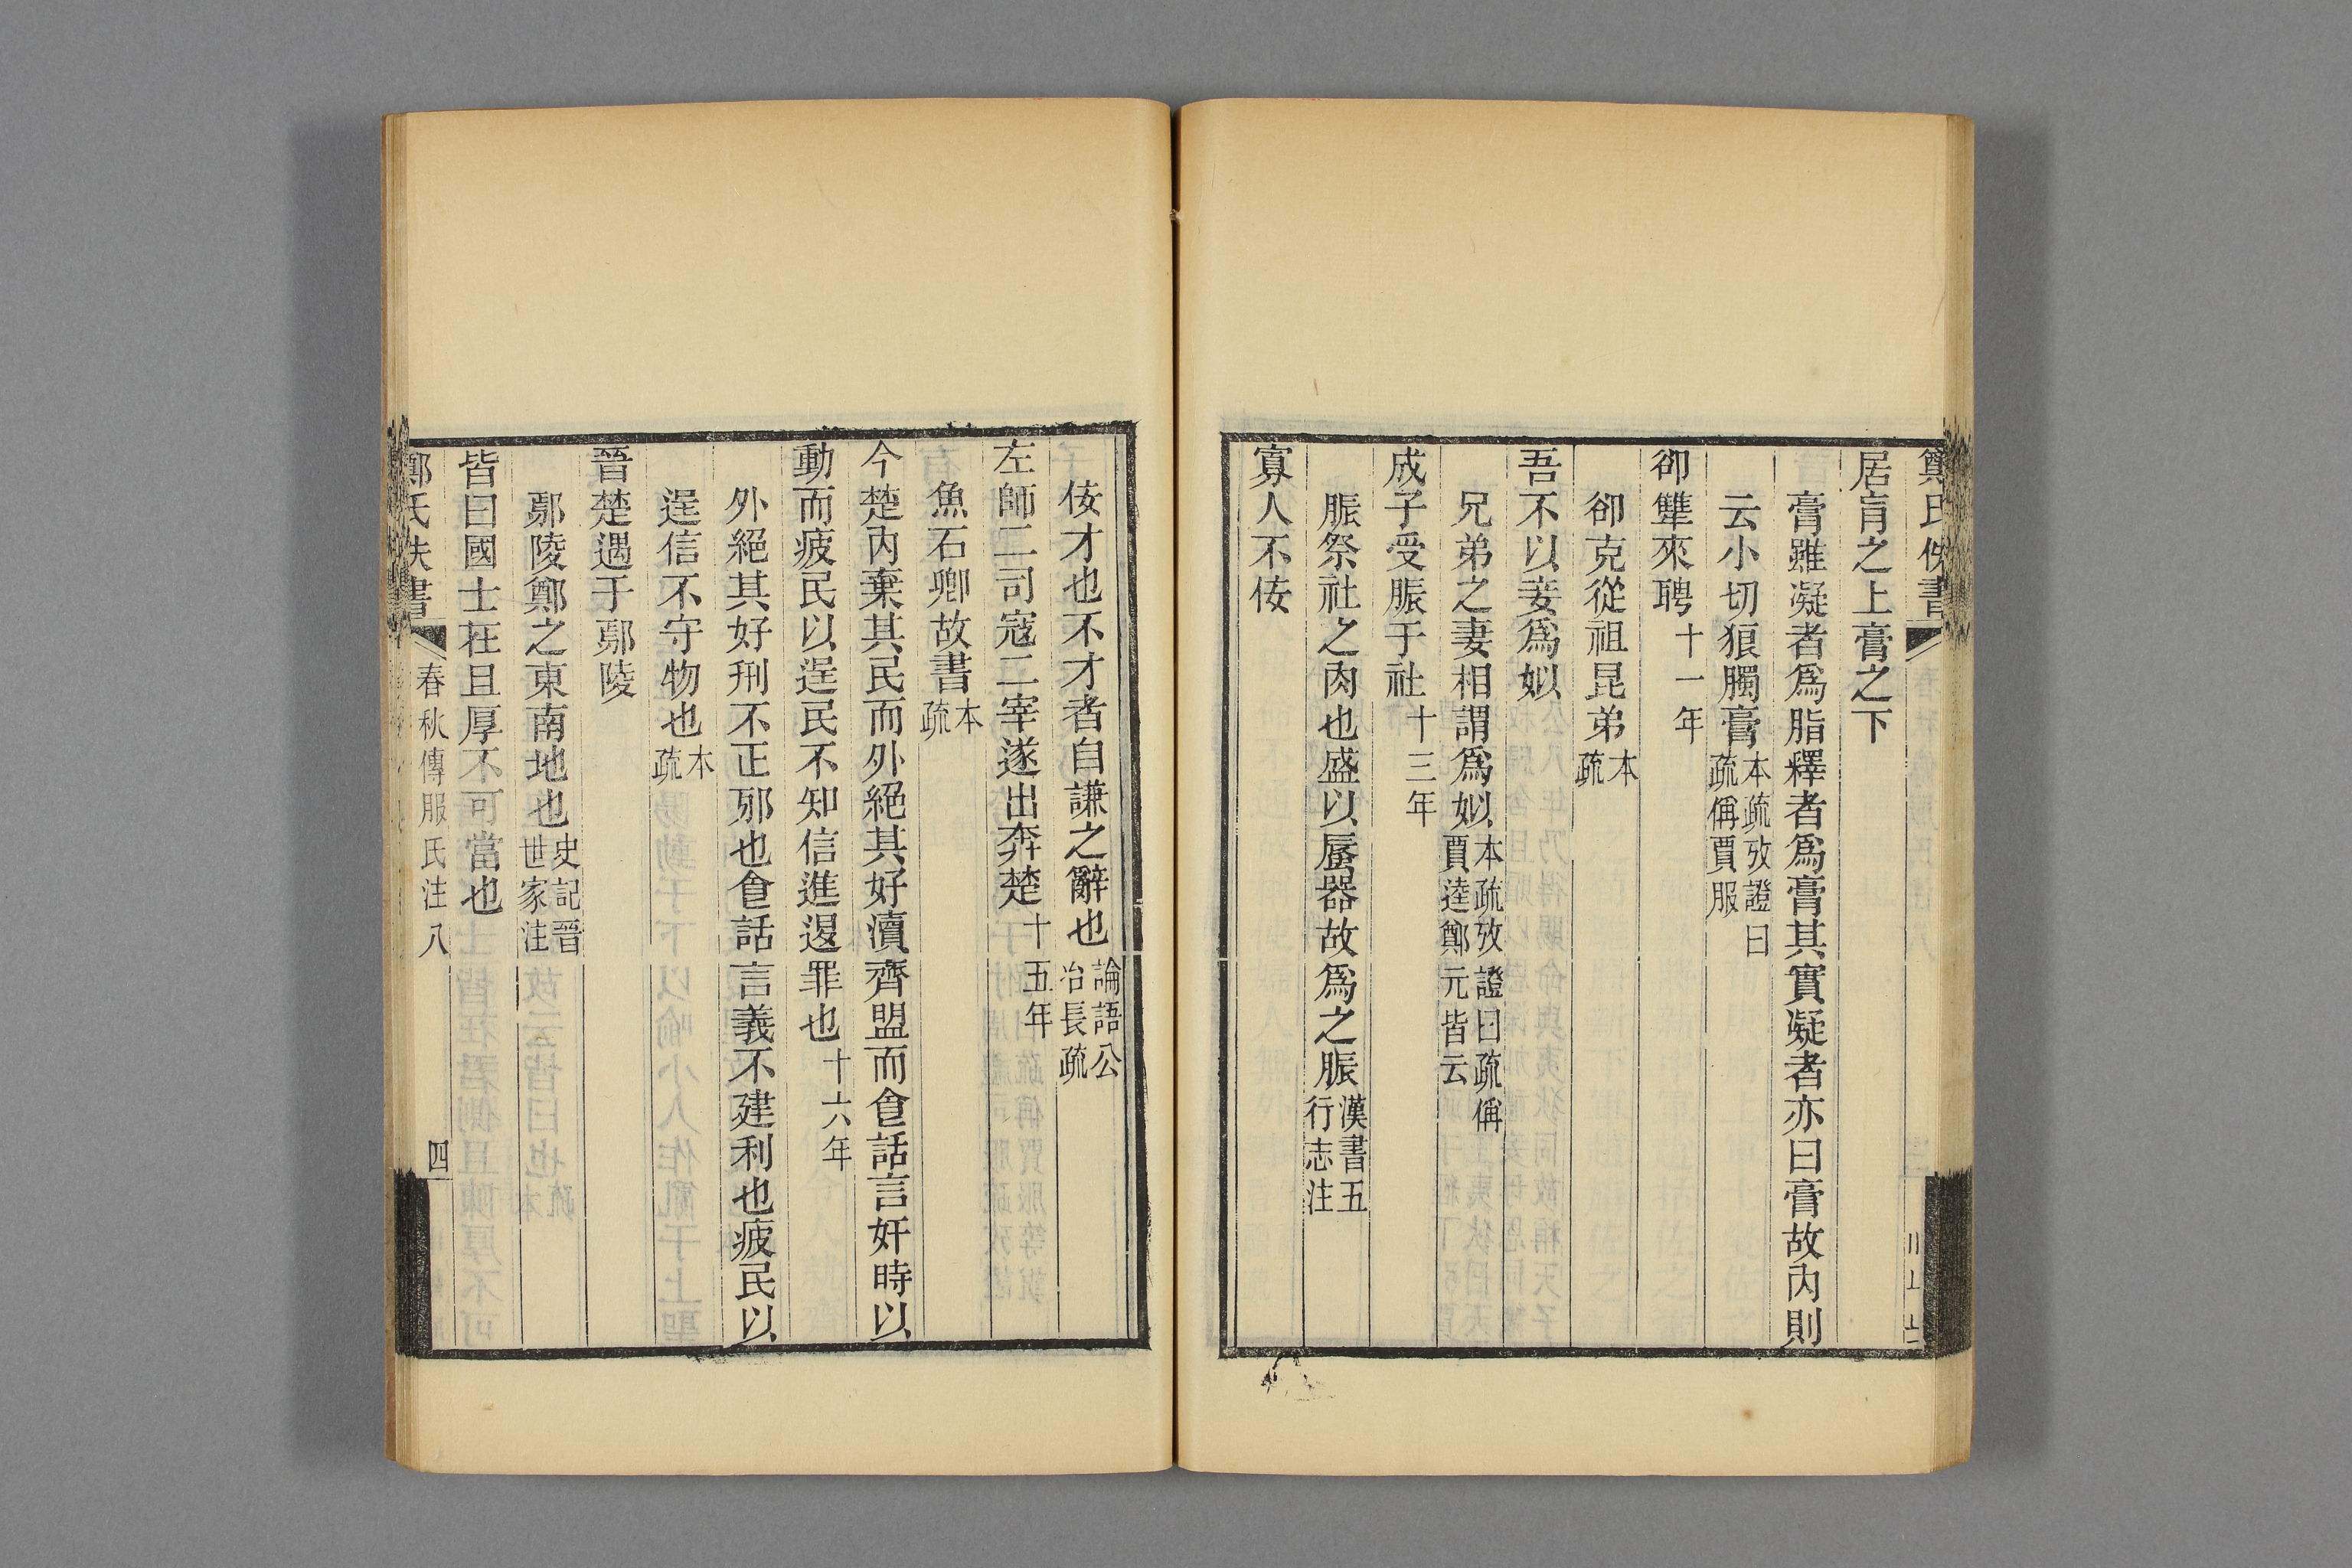 鄭氏佚書
居肓之上膏之下
膏雖凝者爲脂釋者爲膏其實凝者亦曰膏故內則
云小切狼臅膏本疏攷證曰疏稱賈服
郤犨來聘十一年
郤克從祖昆弟本疏
吾不以妾爲姒
兄弟之妻相謂爲姒本疏攷證曰疏稱賈逵鄭元皆云
成子受脤于社十三年
脤祭社之肉也盛以蜃器故爲之脤漢書五行志注
寡人不佞
佞才也不才者自謙之辭也論語公冶長疏
左師二司寇二宰遂出奔楚十五年
魚石卿故書本疏
今楚內棄其民而外絕其好瀆齊盟而食話言奸時以
動而疲民以逞民不知信進退罪也十六年
外絕其好刑不正邪也食話言義不建利也疲民以
逞信不守物也本疏
晉楚遇于鄢陵
鄢陵鄭之東南地也史記晉世家注
皆曰國士在且厚不可當也
鄭氏佚書 春秋傳服氏注八 四